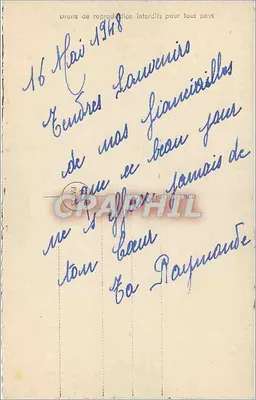 Droits de reproduction interdits pour tous pays
16 Mai 1948
Tendres Souvenirs
de nos fiancailles
que ce beau jour
ne s'efface jamais de
ton Cœur
Ta Raymonde
CPARAMA